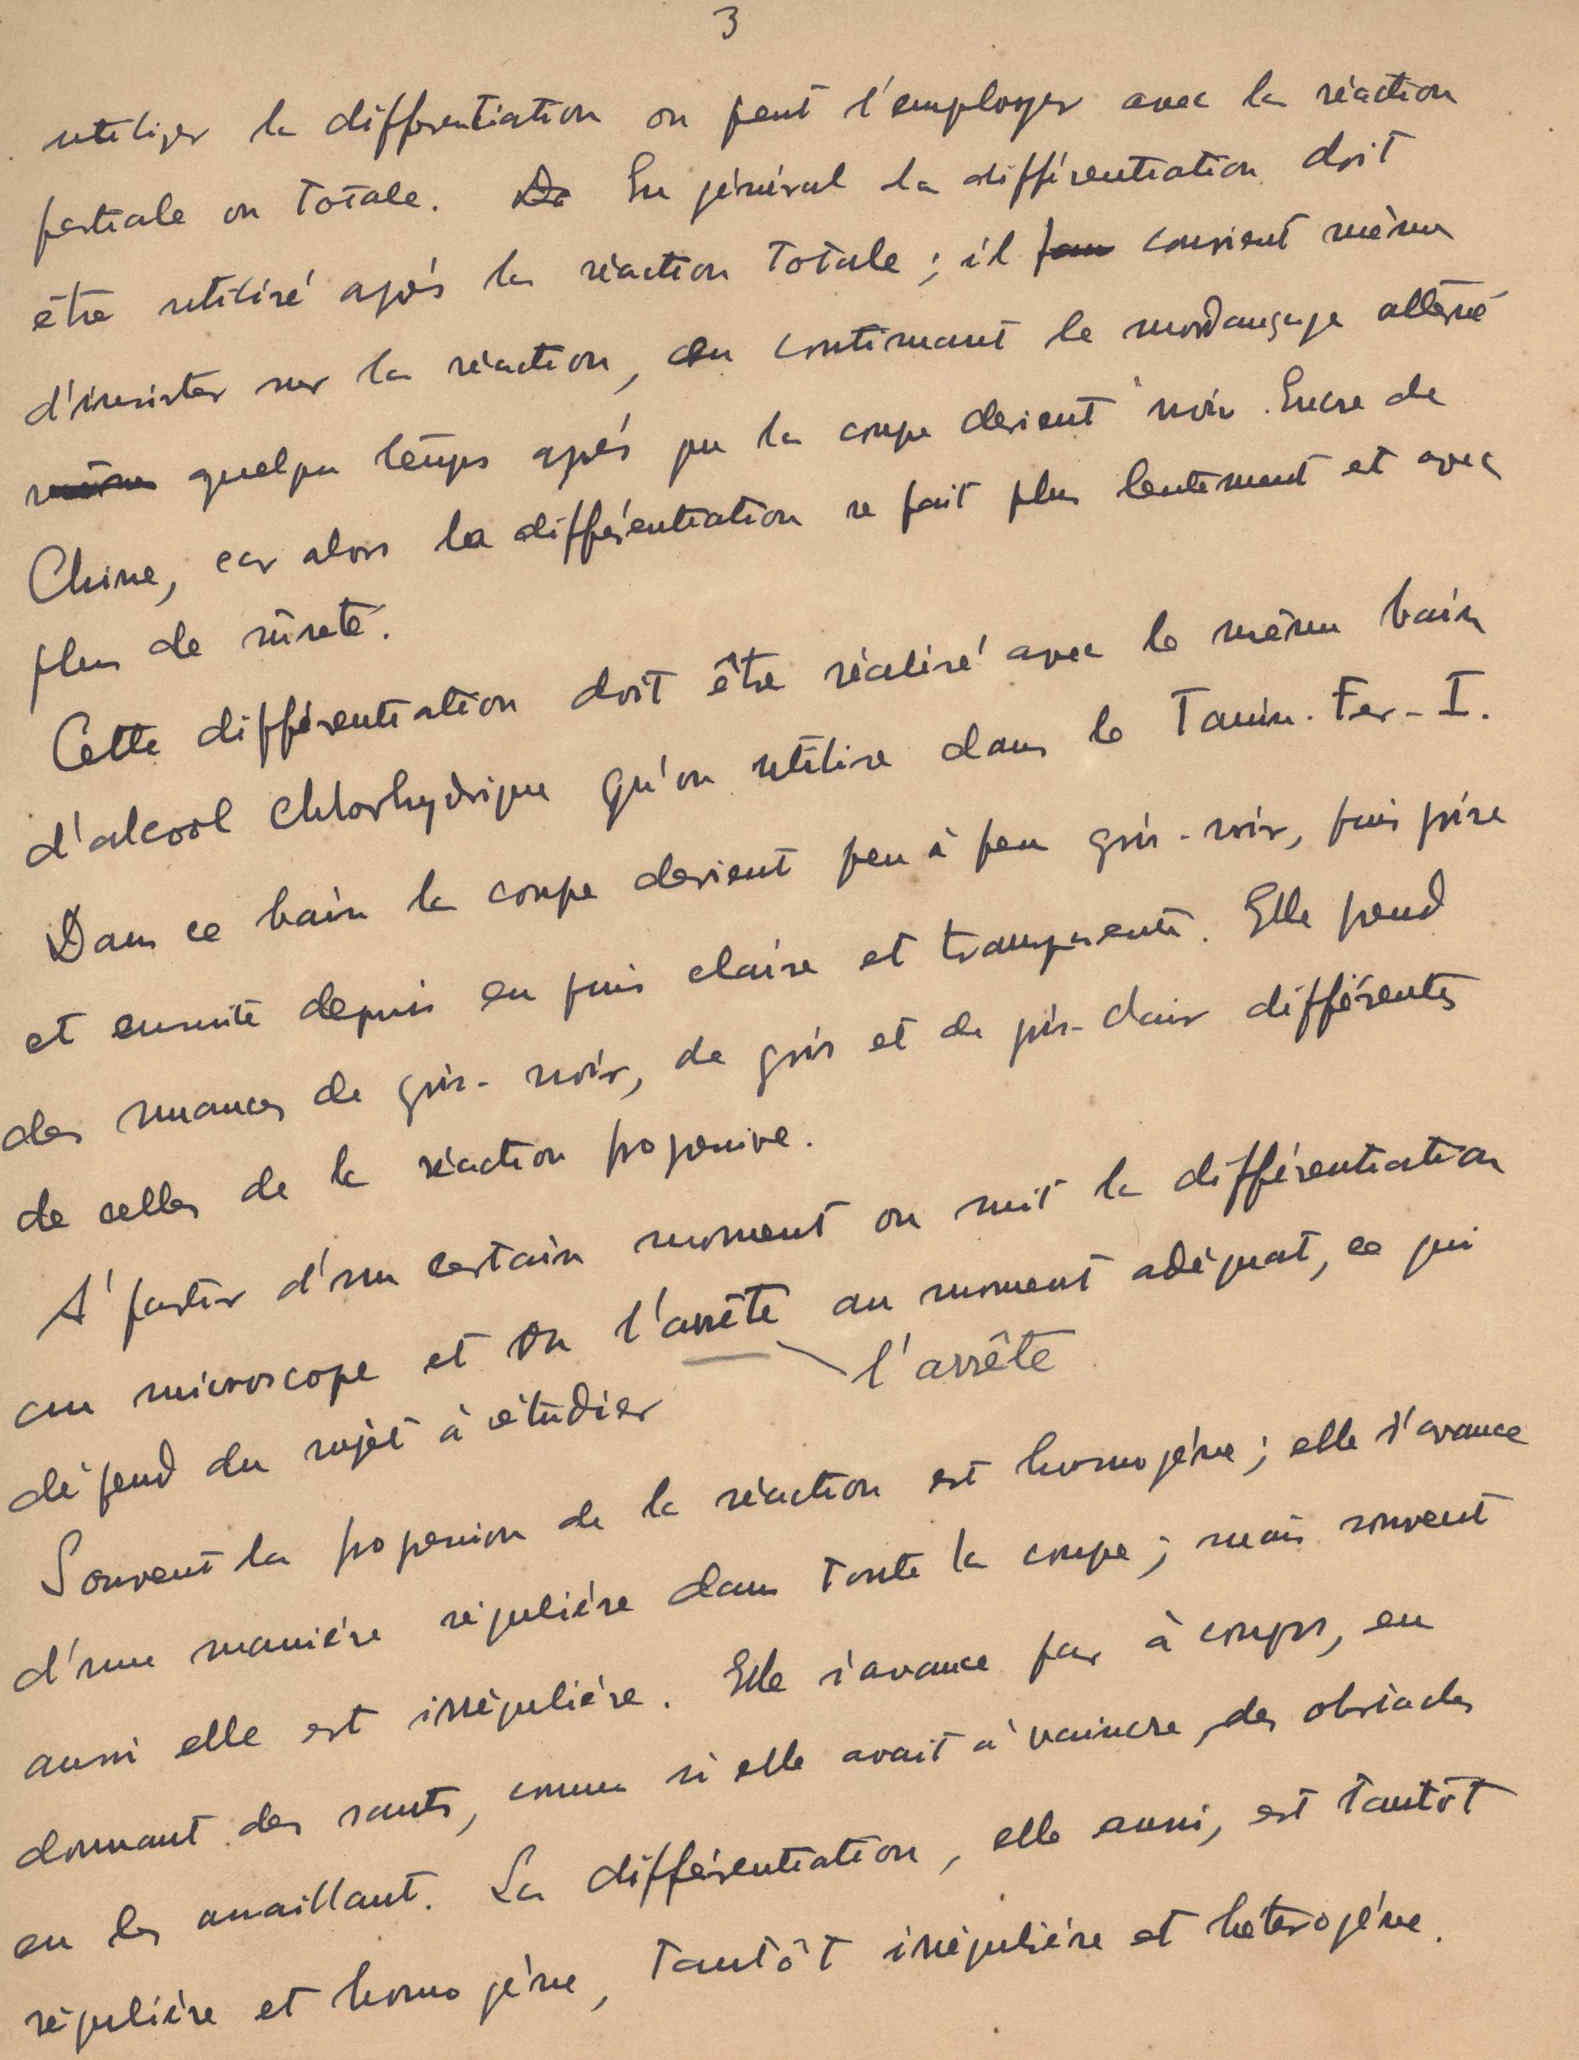 3
utiliser la différentiation on peut l'employer avec la réaction
partiale ou totale. De En général la différentiation doit
être utilisé après la réaction totale ; il fau convient même
d'insister sur la réaction, en continuant le mordançage alterné
même quelque temps après que la coupe devient noir Encre de
Chine, car alors la différentiation se fait plus lentement et avec
plus de sûreté.
Cette différentiation doit être réalisé avec le même bain
d'alcool chlorhydrique qu'on utilise dans le Tanin-Fer-I.
Dans ce bain la coupe devient peu à peu gris-noir, puis grise
et ensuite depuis en puis claire et transparente. Elle prend
des nuances de gris-noir, de gris et de gris-clair différentes
de celles de la réaction progressive.
A' partir d'un certain moment on suit la différentiation
au microscope et on l'arrête au moment adéquat, ce qui
l'arrête
dépend du sujèt à étudier
Souvent la progression de la réaction est homogène ; elle s'avance
d'une manière régulière dans toute la coupe ; mais souvent
aussi elle est irrégulière. Elle s'avance par à coups, en
donnant des sauts, comme si elle avait à vaincre des obstacles
en les assaillant. La différentiation, elle aussi, est tantôt
régulière et homogène, tantôt irrégulière et hétérogène.